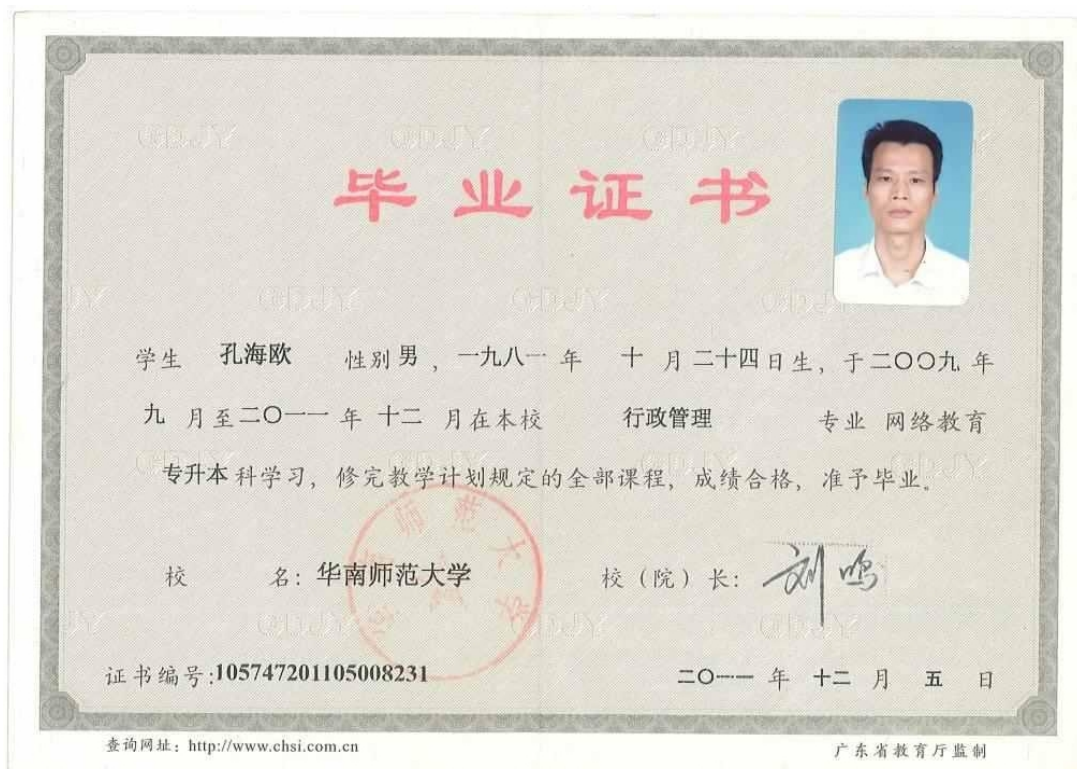 毕业证书
学生 孔海欧 性别 男 ，一九八一 年 十 月 二十四 日生，于 二〇〇九 年
九 月至 二〇一一 年 十二 月在本校 行政管理 专业 网络教育
专升本 科学习，修完教学计划规定的全部课程，成绩合格，准予毕业。
校 名：华南师范大学 校（院）长：刘鸣
证书编号:105747201105008231 二〇一一 年 十二 月 五 日
查询网址：http://www.chsi.com.cn 广东省教育厅监制